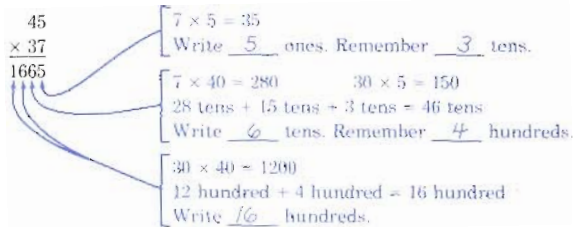 45
× 37
1665
7 × 5 = 35
Write 5 ones. Remember 3 tens.
7 × 40 = 280 30 × 5 = 150
28 tens + 15 tens + 3 tens = 46 tens
Write 6 tens. Remember 4 hundreds.
30 × 40 = 1200
12 hundred + 4 hundred = 16 hundred
Write 16 hundreds.